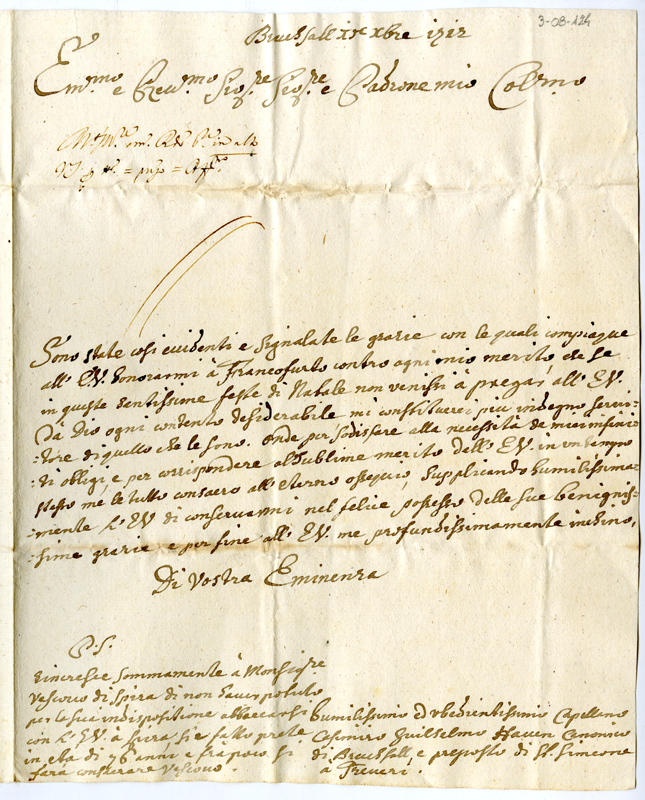 3-08-124
Bruchsall xbre 1712
Em.mo e Rev.mo Sig.re Sig.re e Padrone mio Col.mo
Sono state così evidenti e segnalate le grazie con le quali compiaque
all' E.V. honorarmi à Francofurto contro ogni mio merito, che se
in queste santissime feste di Natale non venissi à pregar, all' E.V.
da Dio ogni contento desiderabile mi constituerei piu indegno servi=
=tore di quello che le sono. onde per sodisfare alla necessità de miei infini=
=ti obligi, e per corrispondere al sublime merito dell' E.V. in un tempo
stesso me le tutto consacro all' eterno ossequio, supplicando humilissima=
=mente l' E.V. di conservarmi nel felice possesso delle sue benignis=
=sime grazie e per fine all' E.V. me profundissimamente inchino,
Di Vostra Eminenza
P.S.
rincresce sommamente à Monsig.re
Vescovo di Spira di non haver potuto
per la sua indispositione abboccarsi
con l' E.V. à Spira si è fatto prete
in età di 76 anni e frà poco si
farà consecrare Vescovo.
humilissimo ed ubedientissimo Capellano
Casimiro Guilielmo Canonico
di Bruchsall, e preposto di St. Simeone
à Treveri.